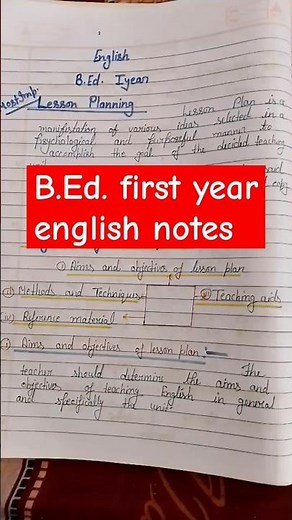 English
B.Ed. I year
Most Imp.
Lesson Planning
Lesson Plan is a
manifistation of various ideas selected in a
psychological and purposeful manner to
accomplish the goal of the decided teaching
B.Ed. first year
english notes
① Aims and objective of lesson plan
ⅲ) Methods and Techniques
Teaching aids
ⅳ) Reference material
① Aims and objectives of lesson plan :-
The
teacher should determine the aims and
objectives of teaching English in general
and specifically the unit.